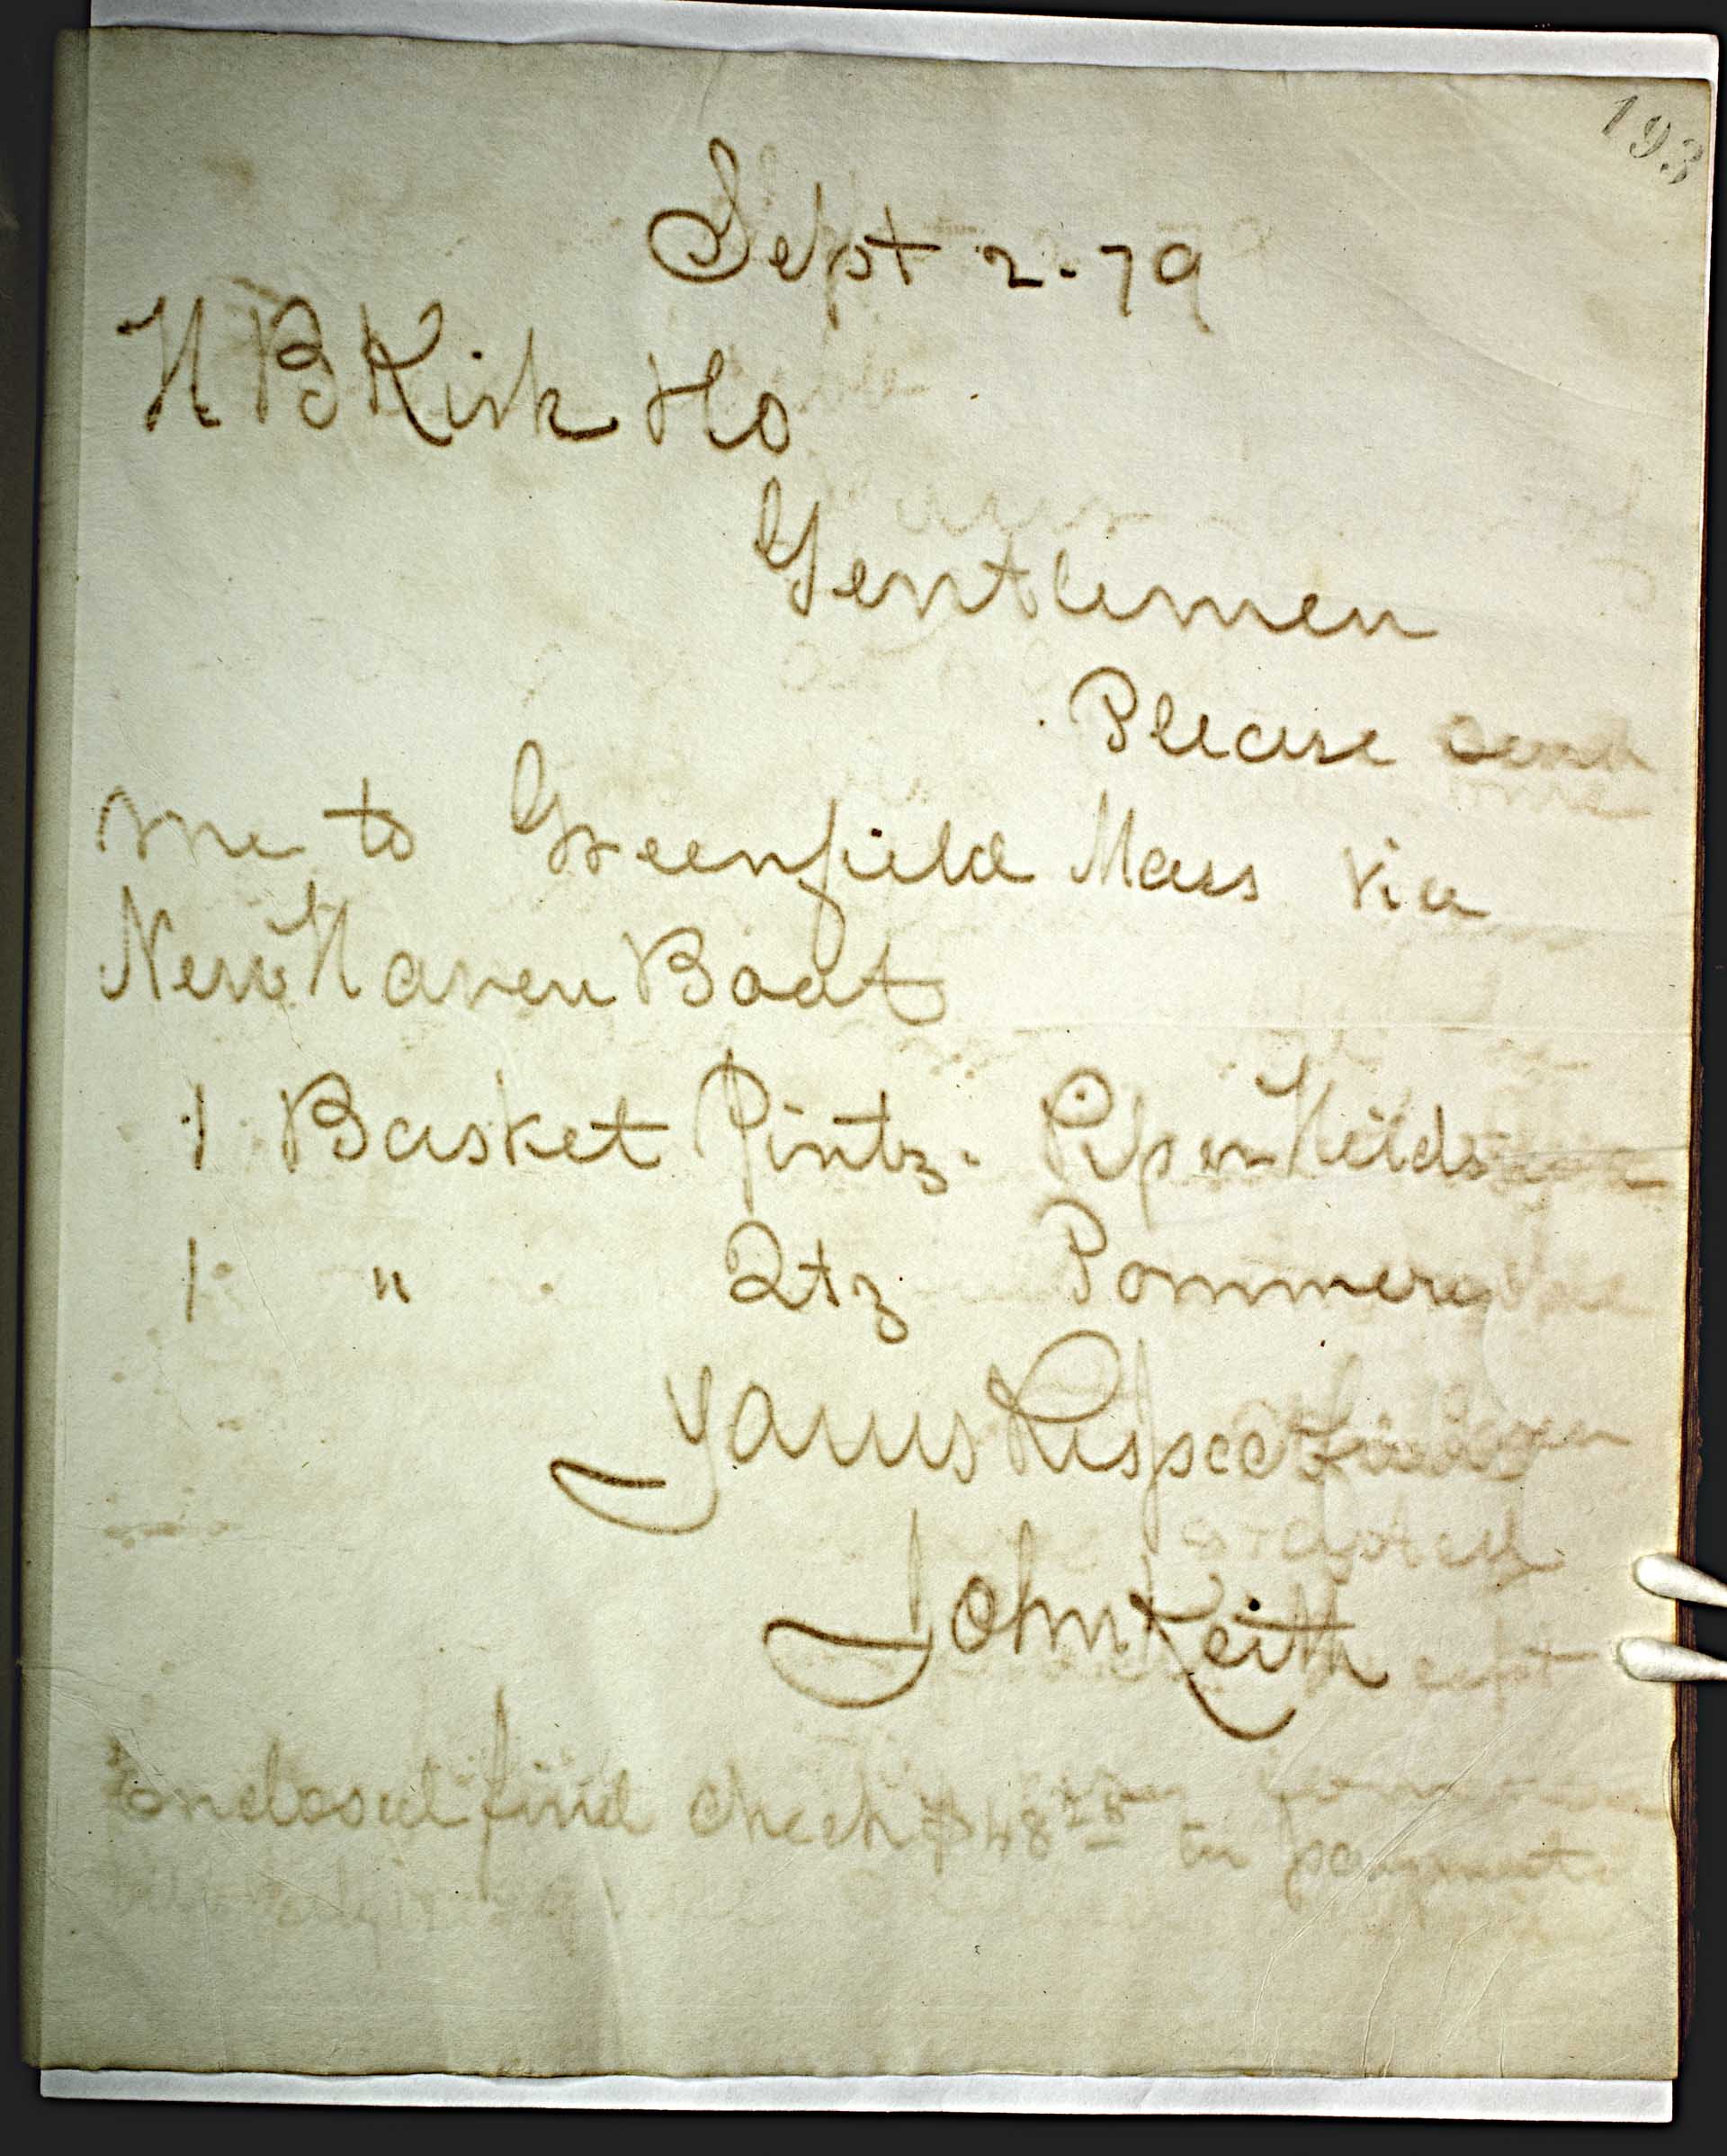 193
Sept 2-79
H B Kirk & Co
Gentlemen
Please send
me to Greenfield Mass via
New Haven Boat
1 Basket Pintz. Piper Heids
1 " Qtz Pommery
Yours Respectfully
John Keith
Enclosed find check $48 25 in payment